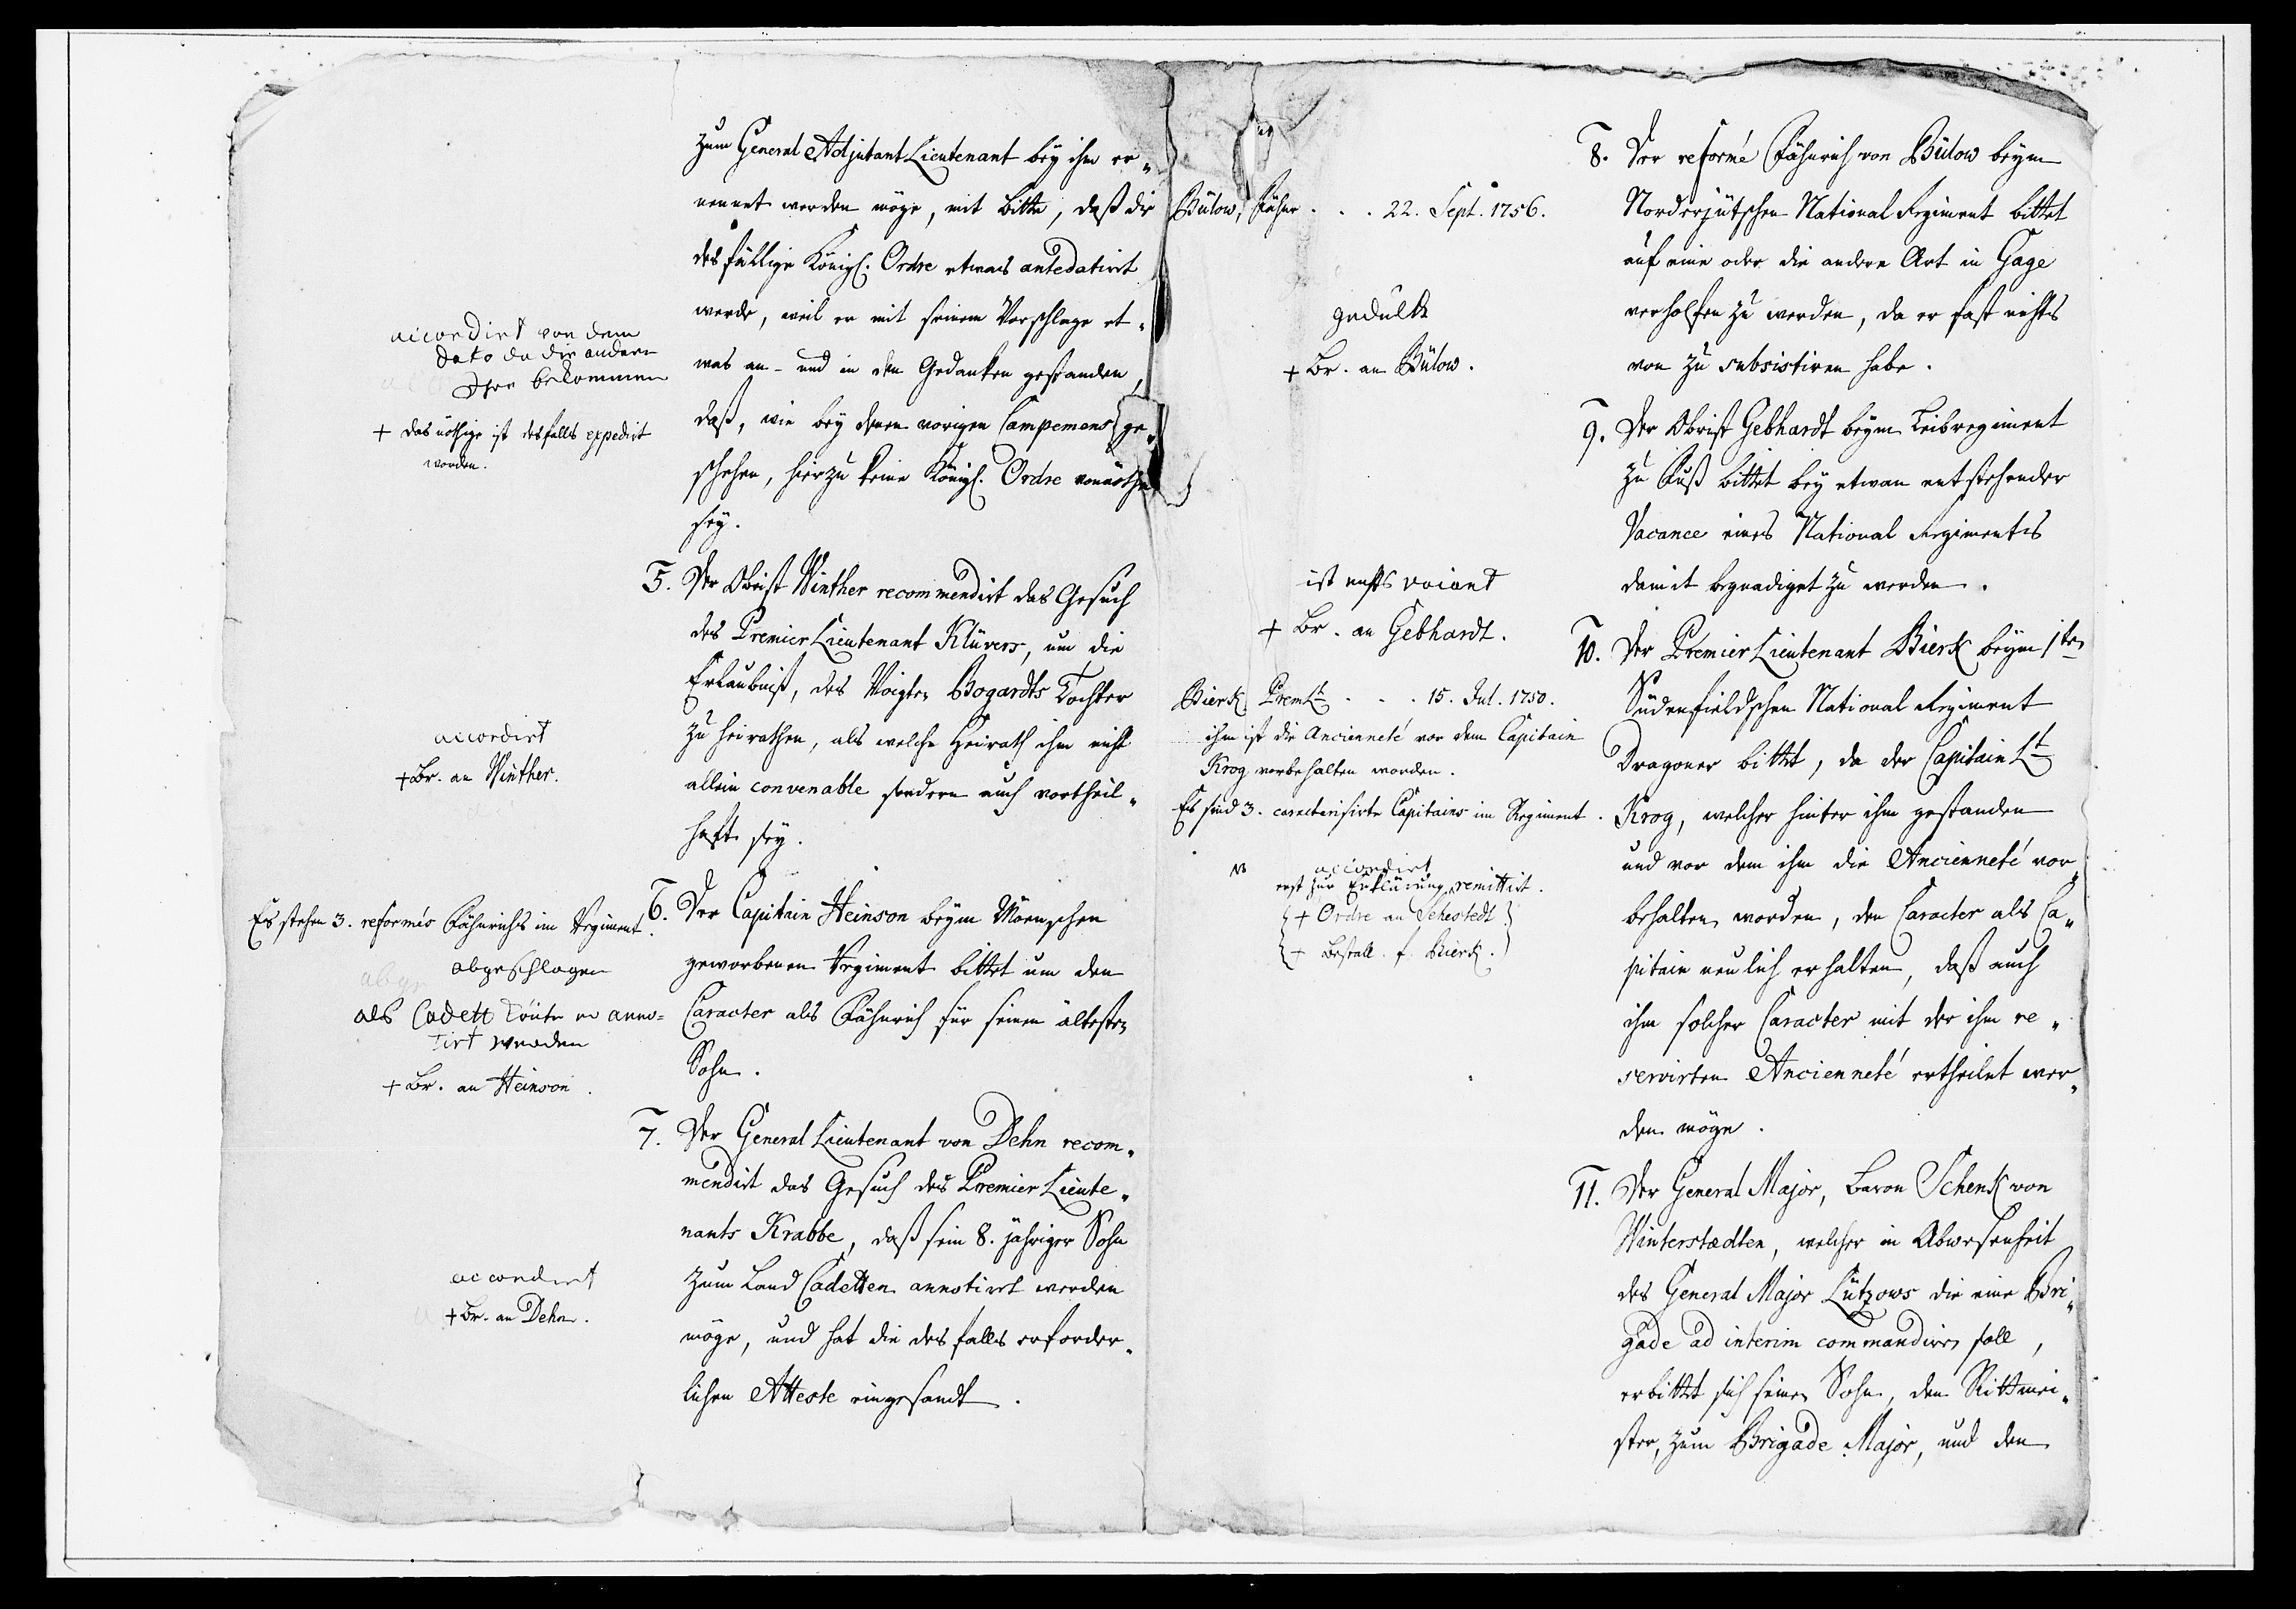 zum General Adjutant Lieutenant bey ihm er„
nennet werden möge, mit Bitte, daß die
desfällige Königl. Ordre etwas antedatirt
werde, weil er mit seinem Vorschlage et„
was an- und in den Gedanken gestanden,
daß, wie bey denen vorigen Campemens ge„
schehen, hierzu keine Königl. Ordre vonnöthen
sey.
accordirt von dem
dato da die andern
Ihre bekommen
+ das nöthige ist desfalls expedirt
worden.
5. Der Obrist Winther recommendirt das Gesuch
des Premier Lieutenant Klüvers, um die
Erlaubniß, des Voigten Bogardts Tochter
zu heirathen, als welche Heirath ihm nicht
allein convenable sondern auch vortheil„
haft sey.
accordirt
+ Br. an Winther.
6. Der Capitain Heinson beym Möenschen
geworbenen Regiment bittet um den
Caracter als Fähnrich für seinen ältesten
Sohn.
Es stehen 3. reformés Fähnrichs im Regiment.
abgeschlagen
als Cadett könte er anno=
tirt werden
+ Br. an Heinson.
7. Der General Lieutenant von Dehn recom„
mendirt das Gesuch des Premier Lieute„
nants Krabbe, daß sein 8. jähriger Sohn
zum Land Cadetten annotirt werden
möge, und hat die desfalls erforder„
lichen Atteste eingesandt.
accordirt
+ Br. an Dehn.
8. Der reformé Fähnrich von Bülow beym
Norderjütschen National Regiment bittet
auf eine oder die andere Art in Gage
verholfen zu werden, da er fast nichts
von zu subsistiren habe.
Bülow, Fähnr . . . 22. Sept. 1756.
gedult
+ Br. an Bülow.
9. Der Obrist Gebhardt beym Leibregiment
zu Fuß bittet bey etwan entstehender
Vacance eines National Regimentes
damit begnadiget zu werden.
ist nichts vacant
+ Br. an Gebhardt.
10. Der Premier Lieutenant Bierk beym 1ten
Südenfieldschen National Regiment
Dragoner bittet, da der Capitain Lt
Krog, welcher hinter ihm gestanden
und vor dem ihm die Ancienneté vor„
behalten worden, den Caracter als Ca„
pitain neulich erhalten, daß auch
ihm solcher Caracter mit der ihm re„
servirten Ancienneté ertheilet wer„
den möge.
Bierk PremLt . . . 15. Jul. 1750.
ihm ist die Ancienneté vor dem Capitain
Krog vorbehalten worden.
Es sind 3. caracterisirte Capitains im Regiment.
accordirt
erst zur Erklärung remittirt.
+ Ordre an Sehestedt
+ Bestall. f. Bierk.
11. Der General Major, Baron Schenk von
Winterstædten, welcher in Abwesenheit
des General Major Lützows die eine Bri„
gade ad interim commandiren soll,
erbittet sich seinen Sohn, den Rittmei„
ster, zum Brigade Major, und den